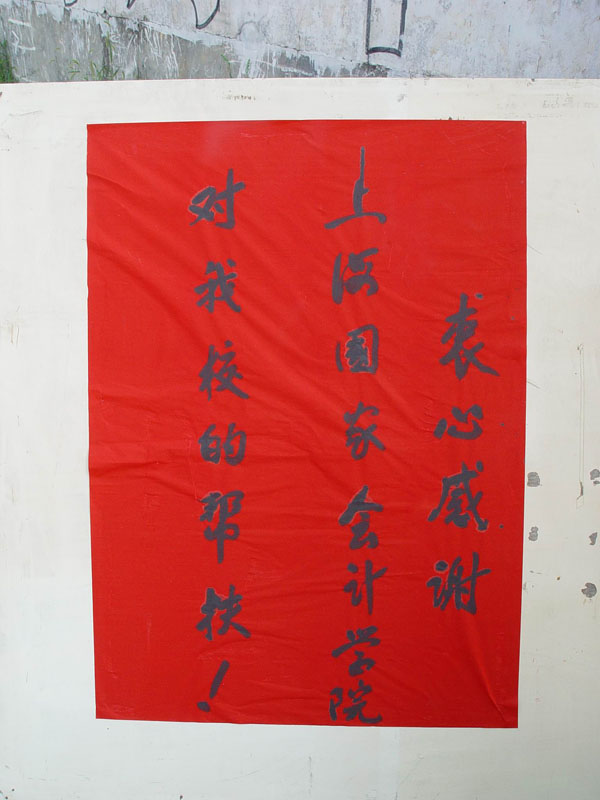 衷心感谢
上海國家会计学院
对我校的帮扶!